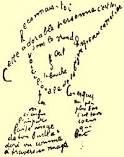 Reconnais-toi
Cette adorable personne c'est toi
Sous le grand chapeau canotier
Œil
Nez
la bouche
Voici l'ovale de ta figure
ton cou
Voici enfin
l'imparfaite
image
de ton buste
adoré vu comme
à travers un nuage
un peu
plus bas
c'est ton
cœur
qui
bat